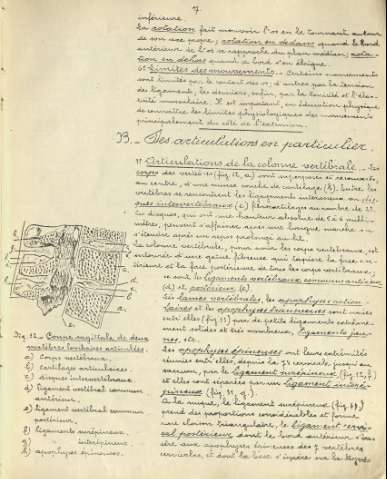 7
inférieure.
La rotation fait mouvoir l'os en le tournant autour
de son axe propre; rotation en dedans quand le bord
antérieur de l'os se rapproche du plan médian; rota-
tion en dehors quand ce bord s'en éloigne.
Limites des mouvements. - Certains mouvements
sont limités par le contact des os, d'autres par la tension
des ligaments; les derniers, enfin, par la tonicité et l'élas-
ticité musculaire. Il est important, en éducation physique,
de connaître les limites physiologiques des mouvements
principalement du côté de l'extension.
B. - Des articulations en particulier.
1° Articulations de la colonne vertébrale. - Les
corps des vertèbres (fig. 32, a) sont superposés et recouverts,
au centre, d'une mince couche de cartilage (b). Entre les
vertèbres se rencontrent les ligaments interosseux ou dis-
ques intervertébraux (c) fibrocartilages au nombre de 23.
Ces disques, qui ont une hauteur absolue de 5 à milli-
mètres, peuvent s'affaisser après une longue marche
s'étendre après un repos prolongé au lit.
La colonne vertébrale, pour ainsi les corps vertébraux, est
entourée d'une gaine fibreuse qui tapisse la face an-
térieure et la face postérieure de tous les corps vertébraux;
ce sont le ligament vertébral commun antérieur
(d) et postérieur (e)
Les lames vertébrales, les apophyses articu-
laires et les apophyses transverses sont unies
entre elles (fig. 33) par de petits ligaments extrême-
ment solides et très nombreux, ligaments jau-
nes, etc.
Les apophyses épineuses ont leurs extrémités
réunies entre elles, depuis la 7e cervicale jusqu'au
sacrum, par le ligament surépineux (fig. 32, f)
et elles sont séparées par un ligament interé-
pineux (fig. 32, g).
A la nuque, le ligament surépineux (fig. 44)
prend des proportions considérables et forme
une cloison triangulaire, le ligament cervi-
cal postérieur dont le bord antérieur s'insère
aux apophyses épineuses des 7 vertèbres
cervicales, et dont la base s'insère sur la ligne
Fig. 32 - Coupe sagittale de deux
vertèbres lombaires articulées.
a) Corps vertébral.
b) cartilage articulaires
c) disques intervertébraux
d) ligament vertébral commun
antérieur.
e) ligament vertébral commun
postérieur.
f) ligament surépineux.
g) " interépineux.
h) apophyses épineuses.